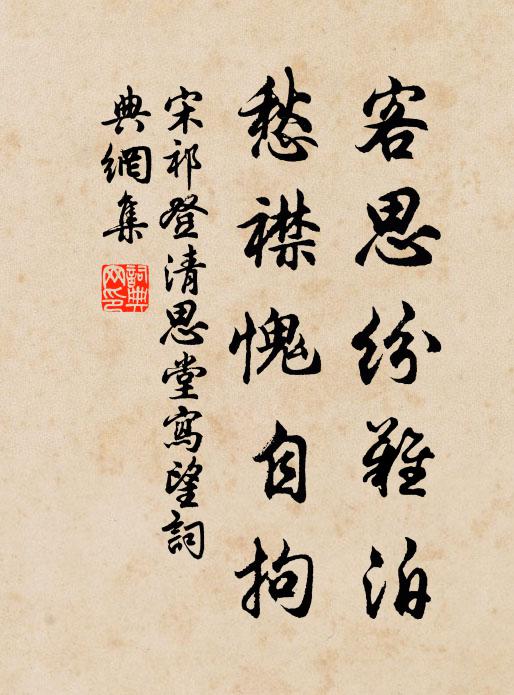 客思紛難泊
愁襟愧自拘
宋祁登清思堂寫望詞
典網集
詞典網印